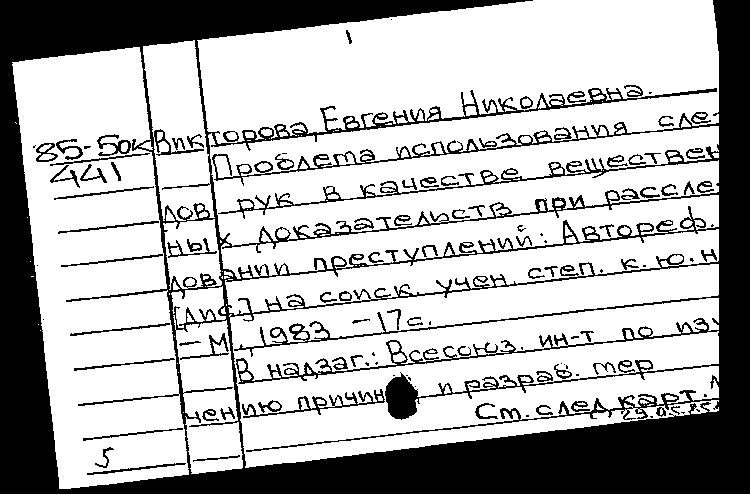 1
85-5ок Викторова, Евгения Николаевна.
441 Проблема использования сле-
дов рук в качестве веществен
ных доказательств при рассле-
довании преступлений: Автореф.
[дис.] на соиск. учен. степ. к.ю.н
- М., 1983 - 17с.
В надзаг.: Всесоюз. ин-т по изу
чению причин и разраб. мер
См. след. карт.
5